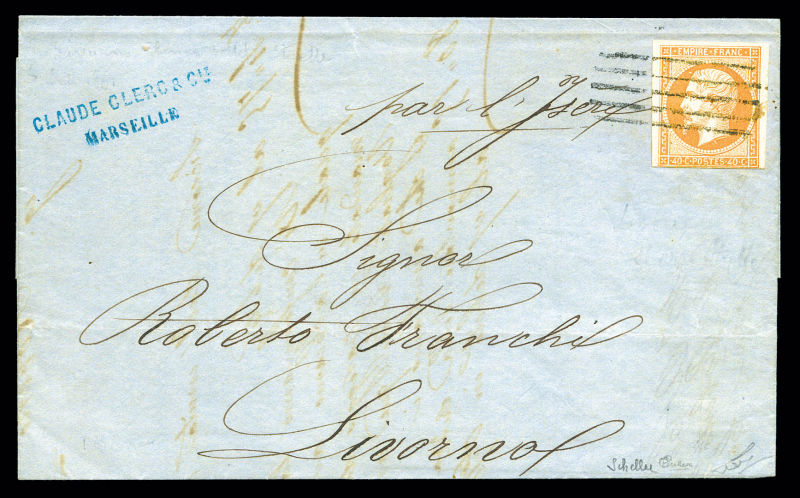 CLAUDE CLERC & CIE
MARSEILLE
par l'Isère
EMPIRE FRANC
40·C·POSTES·40·C
Signor
Roberto Franchi
Livorno
Scheller